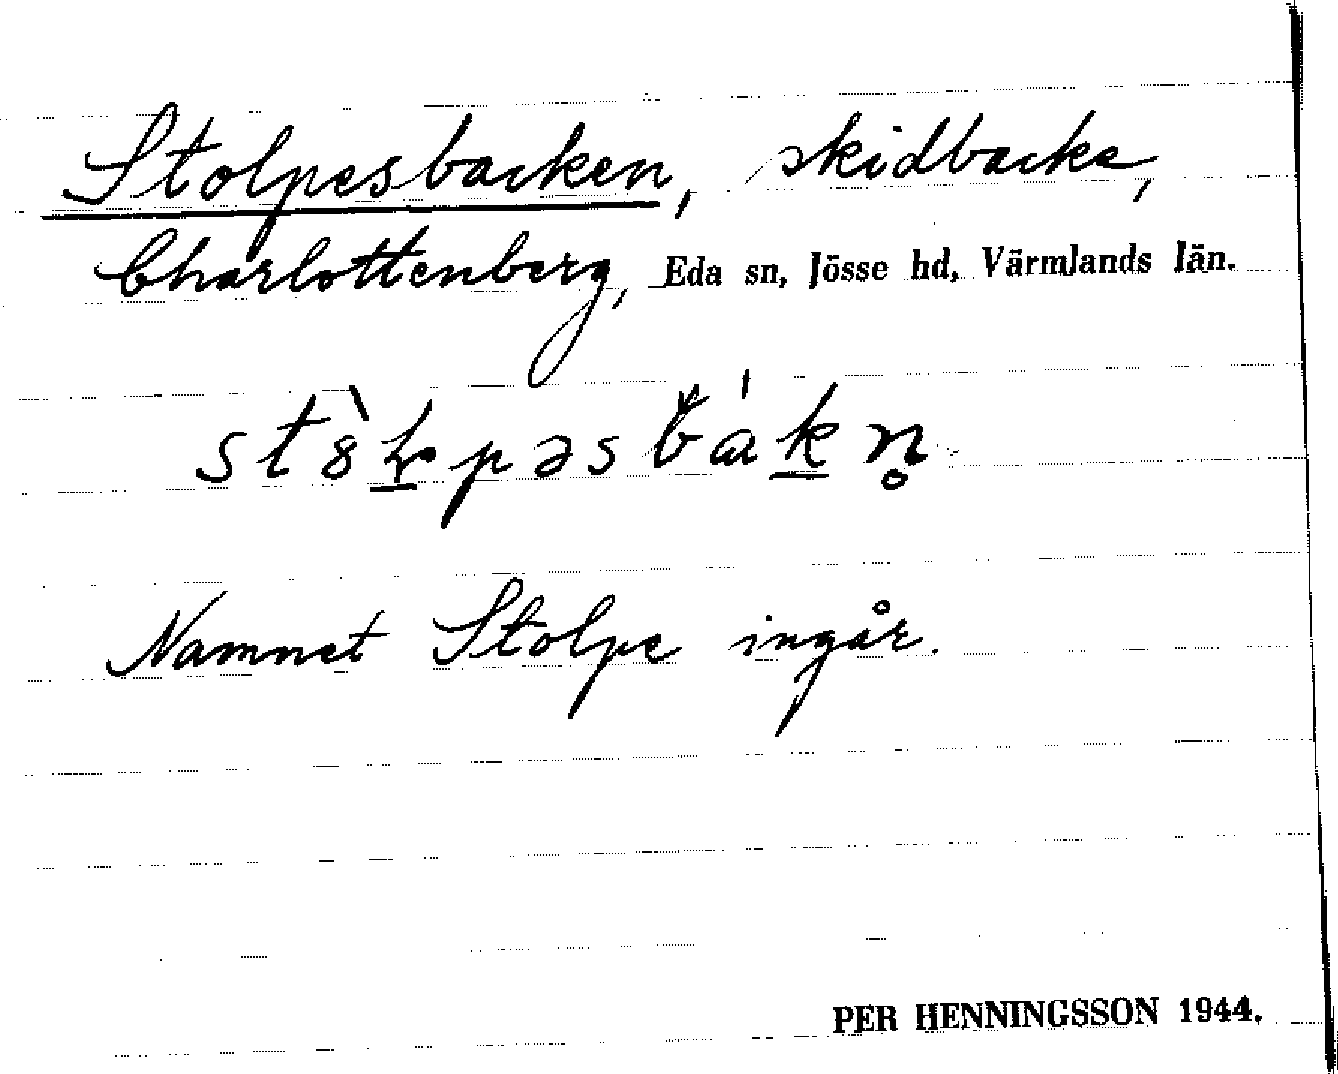 Stolpesbacken, skidbacke,
Charlottenberg, Eda sn, Jösse hd, Värmlands län.
Namnet Stolpe ingår.
PER HENNINGSSON 1944.